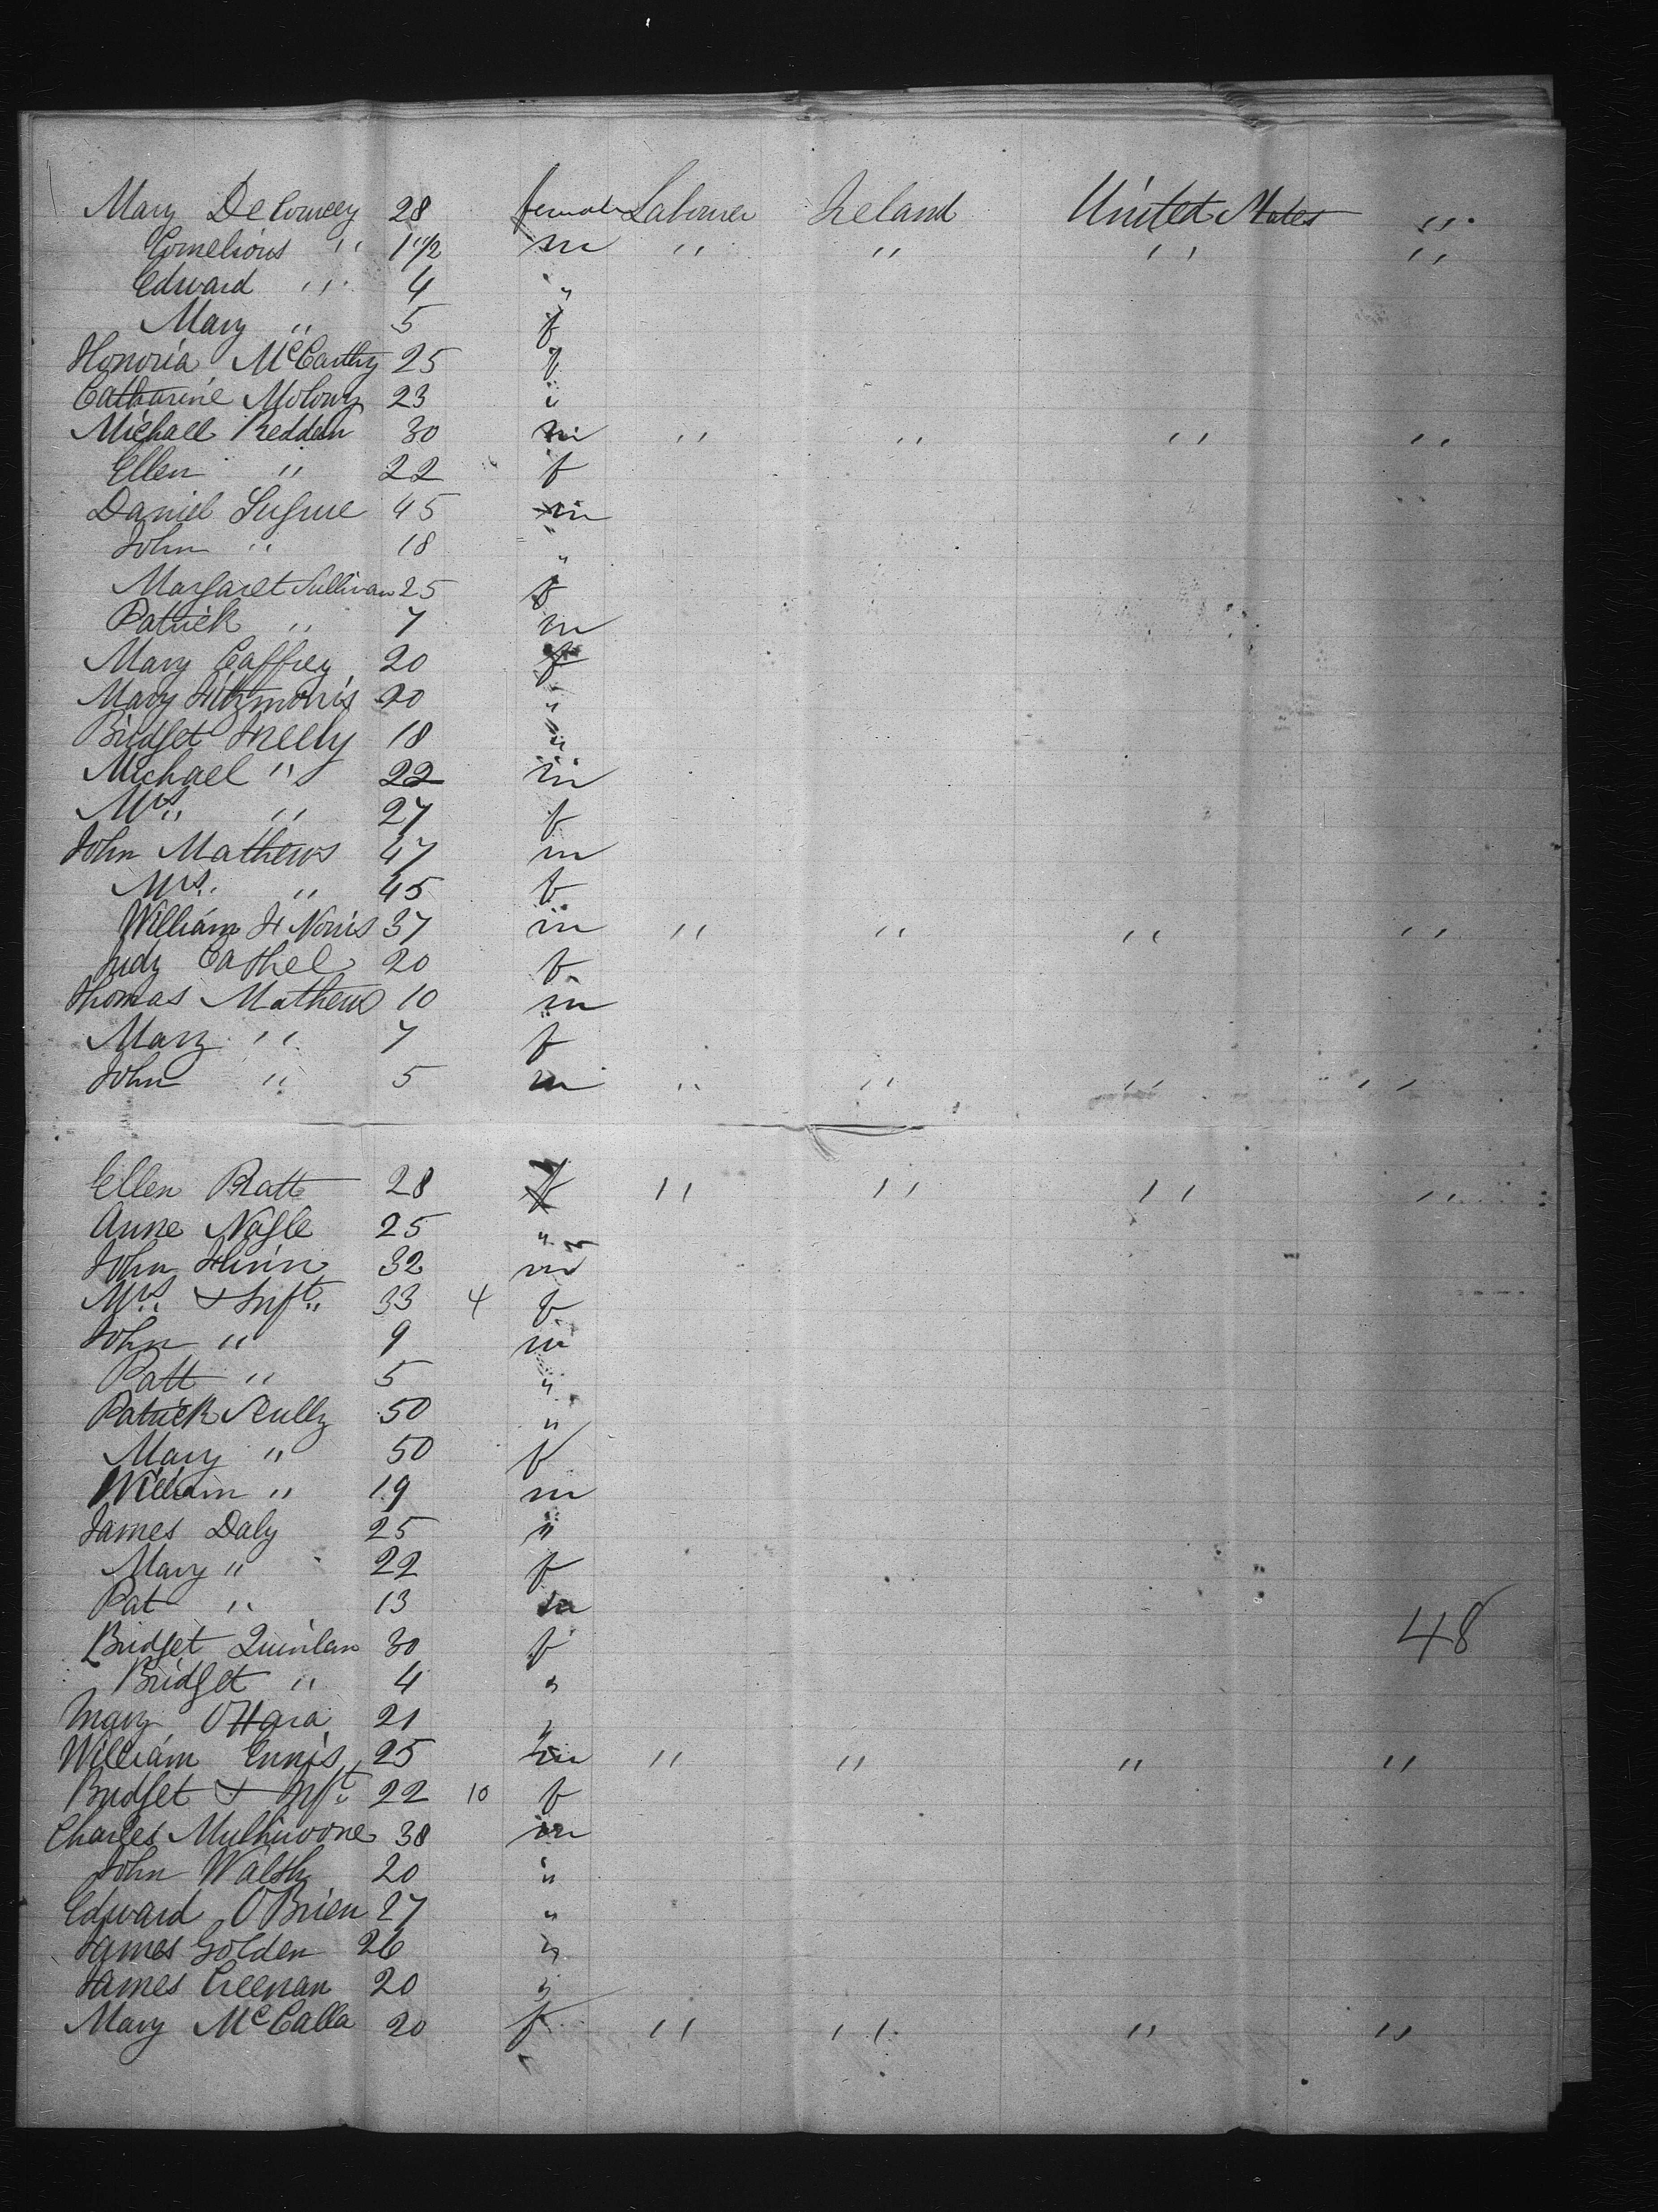 Mary DeCourcey 28 female Labourer Ireland United States "
Cornelious " 1 1/2 m " " " "
Edward " 4 "
Mary " 5 f
Honoria McCarthy 25 f
Catharine Molony 23 "
Michael Reddan 30 m " " " "
Ellen " 22 f
Daniel Sugrue 45 m
John " 18 "
Margaret Sullivan 25 f
Patrick " 7 m
Mary Caffrey 20 f
Mary Fitzmorris 20 "
Bridget Neely 18 "
Michael " 22 m
Mrs " 27 f
John Mathews 47 m
Mrs. " 45 f
William H Norris 37 m " " " "
Judy Cathel 20 f
Thomas Mathews 10 m
Mary " 7 f
John " 5 m " " " "
Ellen Pratt 28 f " " " "
Anne Nagle 25 "
John Flinn 32 m
Mrs " + Inft 33 4 f
John " 9 m
Patt " 5 "
Patrick Scully 50 "
Mary " 50 f
William " 19 m
James Daly 25 "
Mary " 22 f
Pat " 13 m
Bridget Quinlan 30 f 48
Bridget " 4 "
Mary O'Hara 21 "
William Ennis 25 m " " " "
Bridget + Inft " 22 10 f
Charles 38 m
John Walsh 20 "
Edward O'Brien 27 "
James Golden 26 "
James Creenan 20 "
Mary McCalla 20 f " " " "